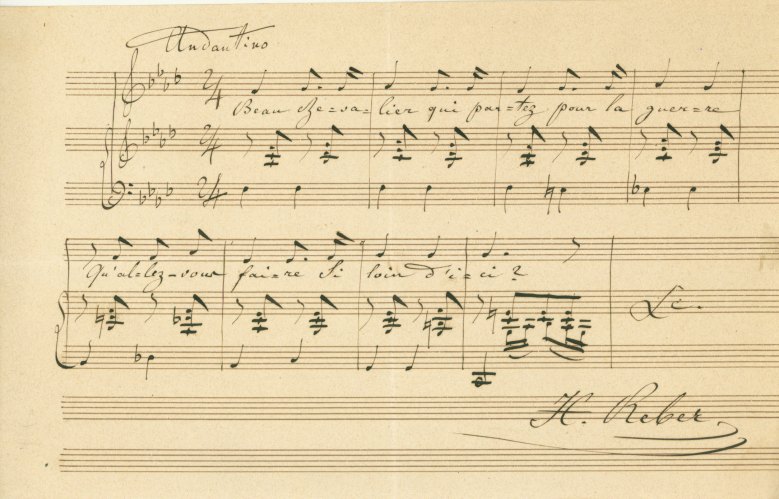 Andantino
Beau che=va=lier qui par=tez pour la guer=re
Qu'al=lez-vous fai=re si loin d'i=ci?
&c.
H. Reber